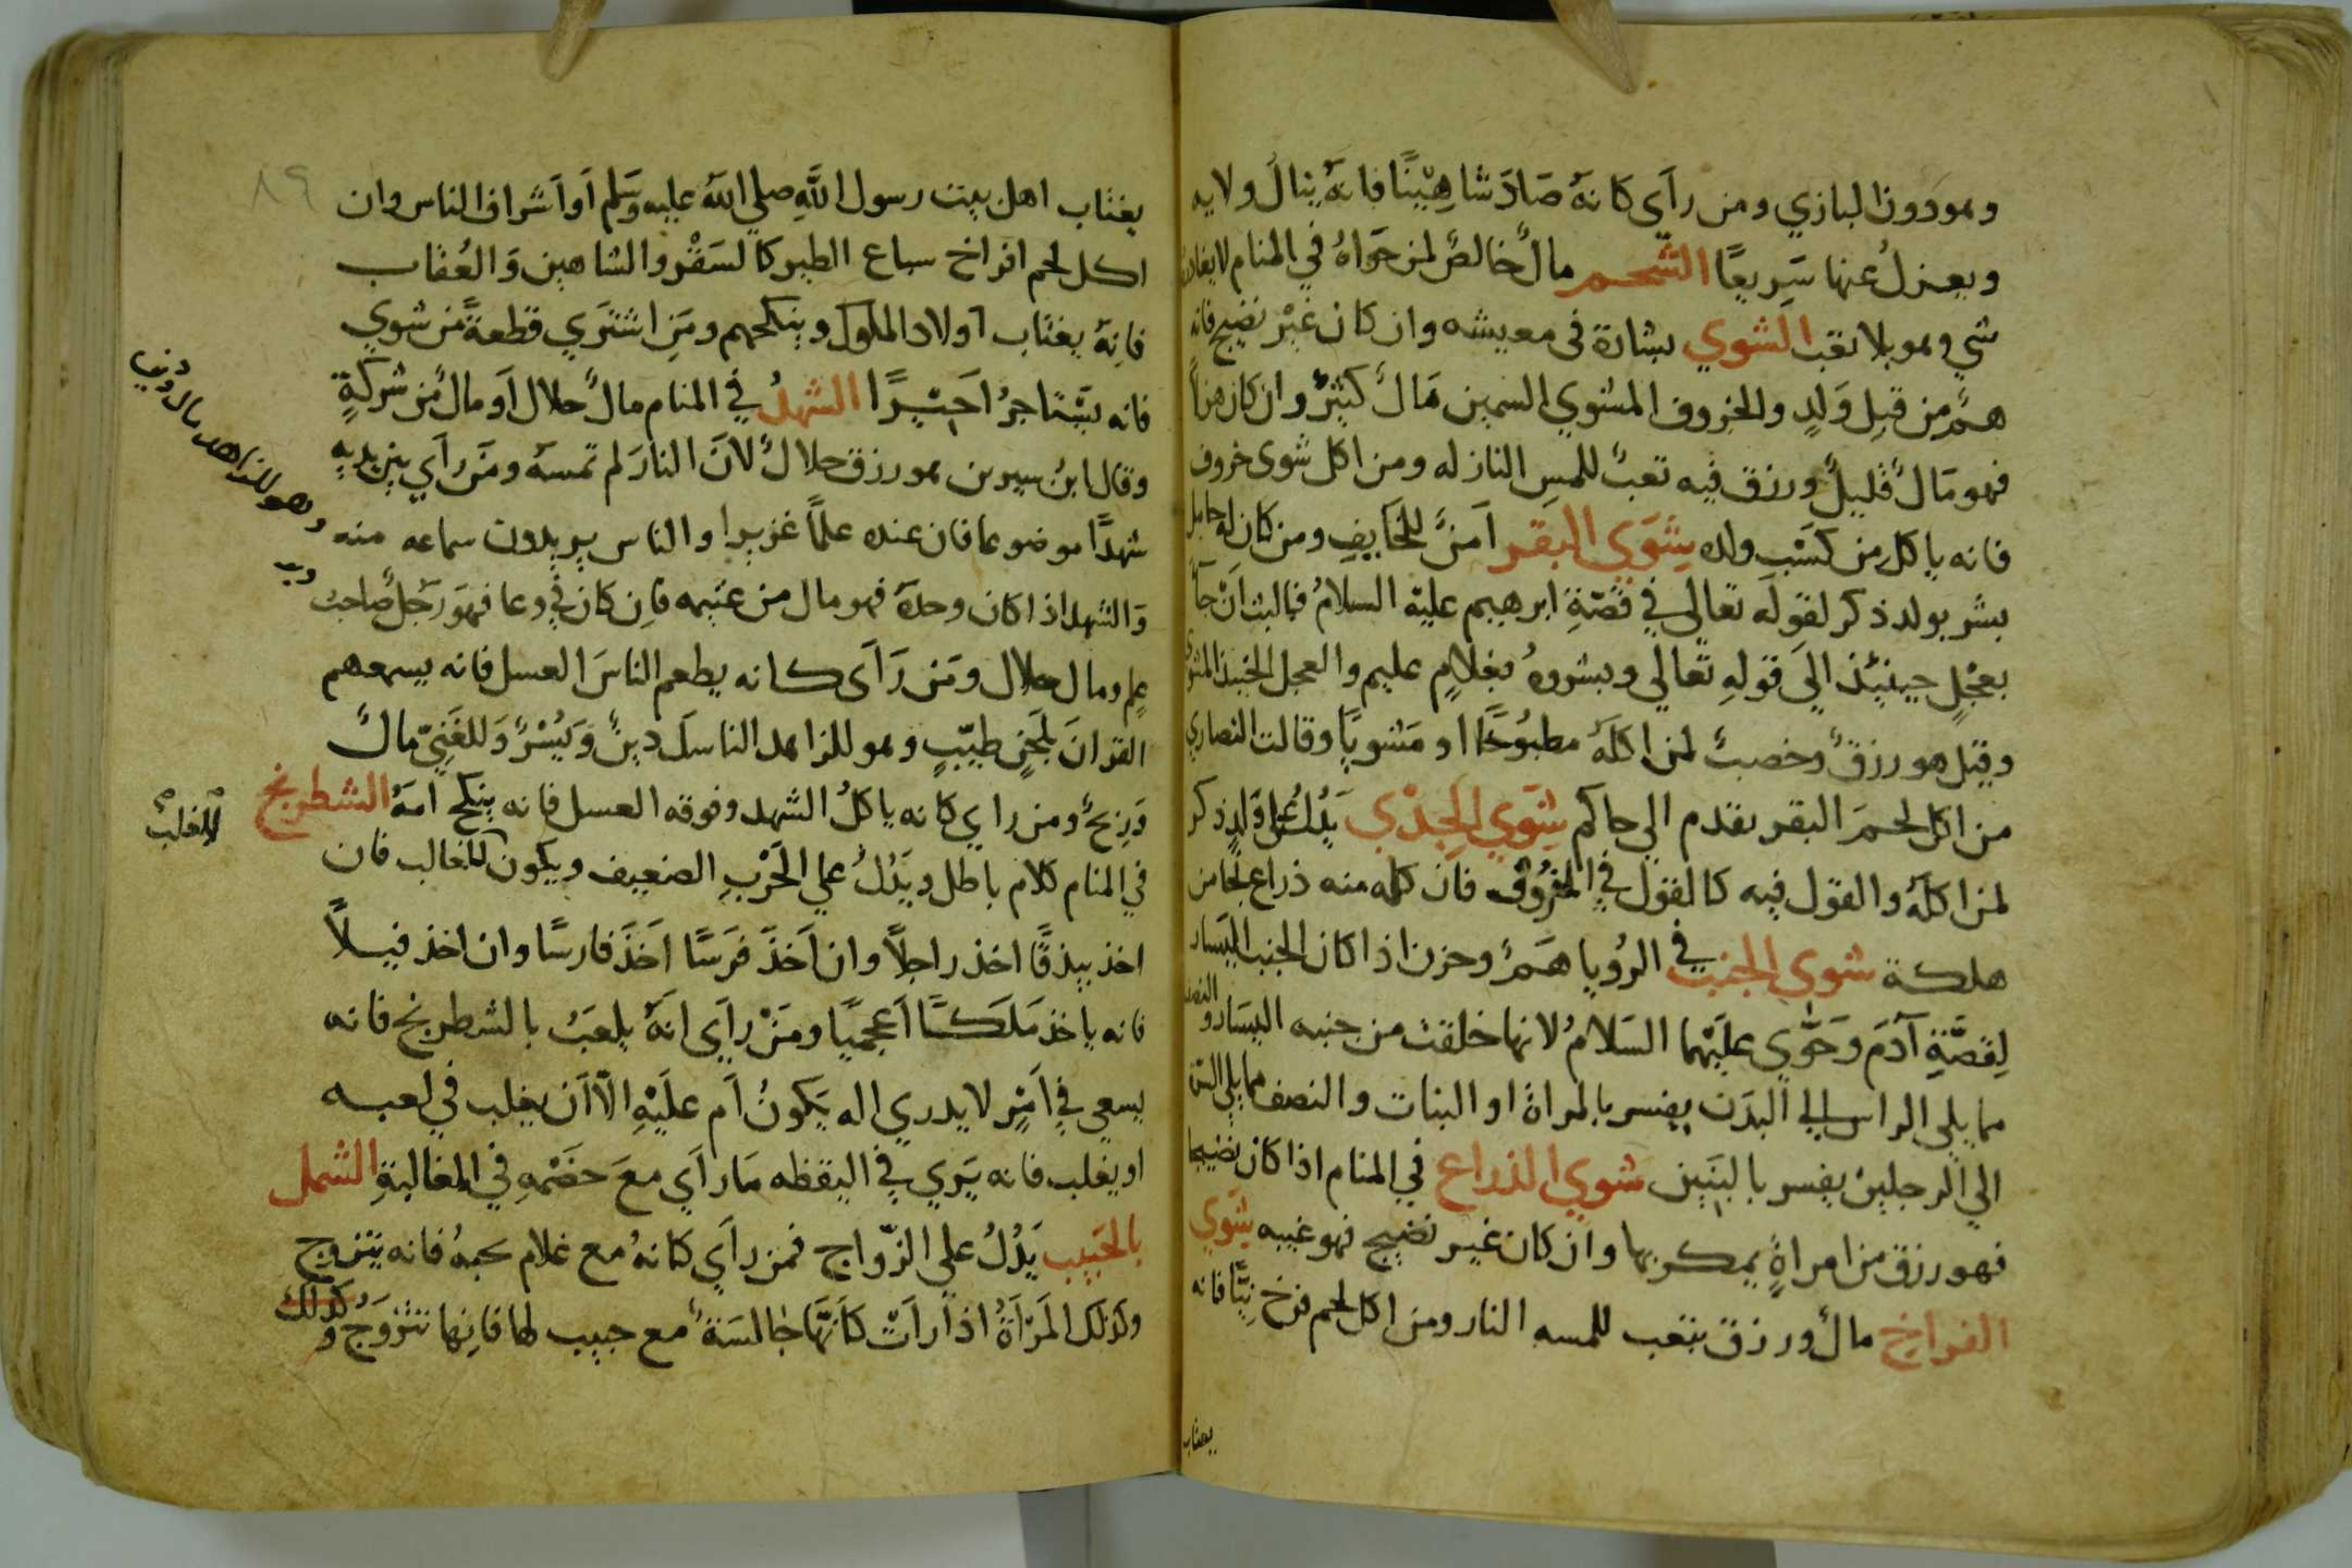 وهو دون البازي ومن رأى كانه صَادَ شاهِيْنًا فانهُ ينال ولايه
ويعزلُ عنها سَرِيعًا الشحم مالٌ خالصٌ لمن حَوَاهُ في المنام لا يغادره
شي وهو بلا تعب الشوي بشارة في معيشه وان كان غيْر نضيج فانه
همٌ من قِبلِ وَلدٍ والخروف المشوي السمين مَالٌ كثيرٌ وان كان هزلاً
فهو مَالٌ قليلٌ ورزق فيه تعبٌ للمسِ النار له ومن اكل شوى خروف
فانه ياكل من كسْب ولده شَوَي البقر اَمنٌ للخَايِفِ ومن كان له حامل
بشر بولد ذكر لقوله تعالى في قصّةِ ابرهيم عليْه السلامُ فما لبث اَنْ جَآ
بعجْلٍ حينيٍذ الَى قولهِ تعالى وبشروهُ بغلامٍ عليم والعجل الحنيذ المشوى
وقيل هو رزقٌ وخصبٌ لمن اكلهُ مطبُوخًا او مَشويًا وقالت النصاري
من اكل لحمَ البقر يقدم الي حاكم شَوَي الجدْي يَدُلُ عَلى وَلدٍ ذكر
لمن اكلهُ والقول فيه كالقول في الخرُوف فان كلمه منه ذراع نجا من
هلكة شوى الجنب في الرُويا هَمٌ وحزن اذا كان الجنب اليَسار
لِقصَّةِ آدَمَ وَحَوَّي عليْهما السَلامُ لانها خلقت من جنبه اليسَار والنصف
مما يلي الراس الي البدَن يفسر بالمراة او البنات والنصف مما يلي البدن
الي الرجليْن يفسر بالبَنِين شوي الذراع في المنام اذا كان نضيجا
فهو رزق من امراةٍ يمكر بها وان كان غير نضيج فهو غيبه شَوي
الفراخ مالٌ ورزق بتعب للمسه النار ومن اكل لحم فرخ نِيًّا فانه
يغتاب
يغتاب اهل بيت رسول اللَّهِ صلي اللهُ عليه وَسَلم اَو اَشراف الناس وان
اكل لحم افراخ سباع الطير كالسَقْر والشاهين وَالعُقاب
فانهُ يغتاب اَولاد الملوك وينكحهم ومَن اشترَي قطعةً من شوي
فانه يسْتاجرُ اَجيْرًا الشهدُ في المنام مالٌ حلال اَو مالٌ من شركةٍ
وقال ابنُ سيرين هو رزق حلالٌ لانَ النارَ لم تمسهُ ومَن رآي بين يديهِ
شهدًا موضوعا فان عنده علمًا غزيرا والناس يريدون سماعه منه
وَالشهد اذا كان وحدهُ فهو مال من غنيمه فاِن كان في وعا فهوَ رَجلٌ صاحبُ
علم ومال حلال ومَن رَآى كانه يطعم الناسَ العسل فانه يسمعهم
القرانَ بلَحْنٍ طيّبٍ وهو للزاهد الناسك دينٌ وَيُسْرٌ وَللغَنِيّ مالٌ
وَرِبحٌ ومن راى كانه ياكلُ الشهد وفوقه العسل فانه ينكح امهُ الشطرنج
في المنام كلام باطل ويَدُلُ علي الحَرْبِ الضعيف ويكون للغالب فان
اخذ بيذقًا اخذ راجلاً وان اَخذَ فرَسًا اَخذَ فارسًا وان اخذ فيلاً
فانه ياخذ مَلَكًا اَعجميًا ومَنْ رآي انهُ يلعَبُ بالشطرنج فانه
يسعي في اَمْرٍ لا يدري اله يَكونُ اَم علَيْهِ الاّ اَن يغلب في لعبه
او يغلب فانه يَري في اليقظه مَا رآي معَ خصْمهِ في المغالبةِ الشمل
بالحَبيب يَدُلُ علي الزّواج فمن رآي كانهُ مع غلام يحبهُ فانه يتزوج
وكذلك المَرْاَةُ اذا راَتْ كاَنّهَا جالسَةٌ مع حبيب لها فانها تتزوَجُ و كذلك
وهو للزاهد مال ودين
للغلب